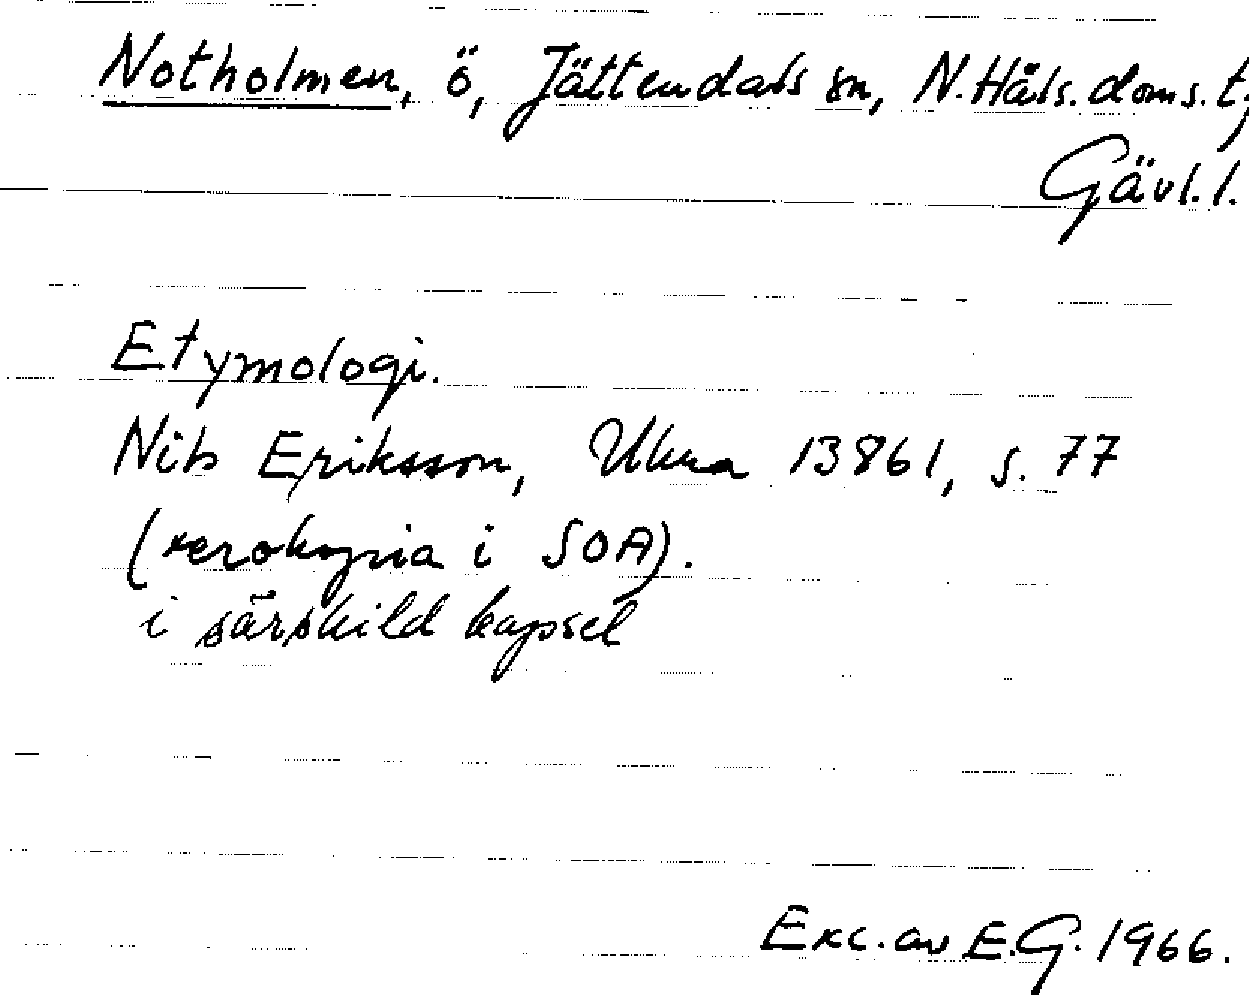 Notholmen, ö, Jättendals sn, N. Häls. doms. t,
Gävl. l.
Etymologi.
Nils Eriksson, Ukua 13861, s. 77
(xerokopia i SOA).
i särskild kapsel
Exc. av E.G. 1966.